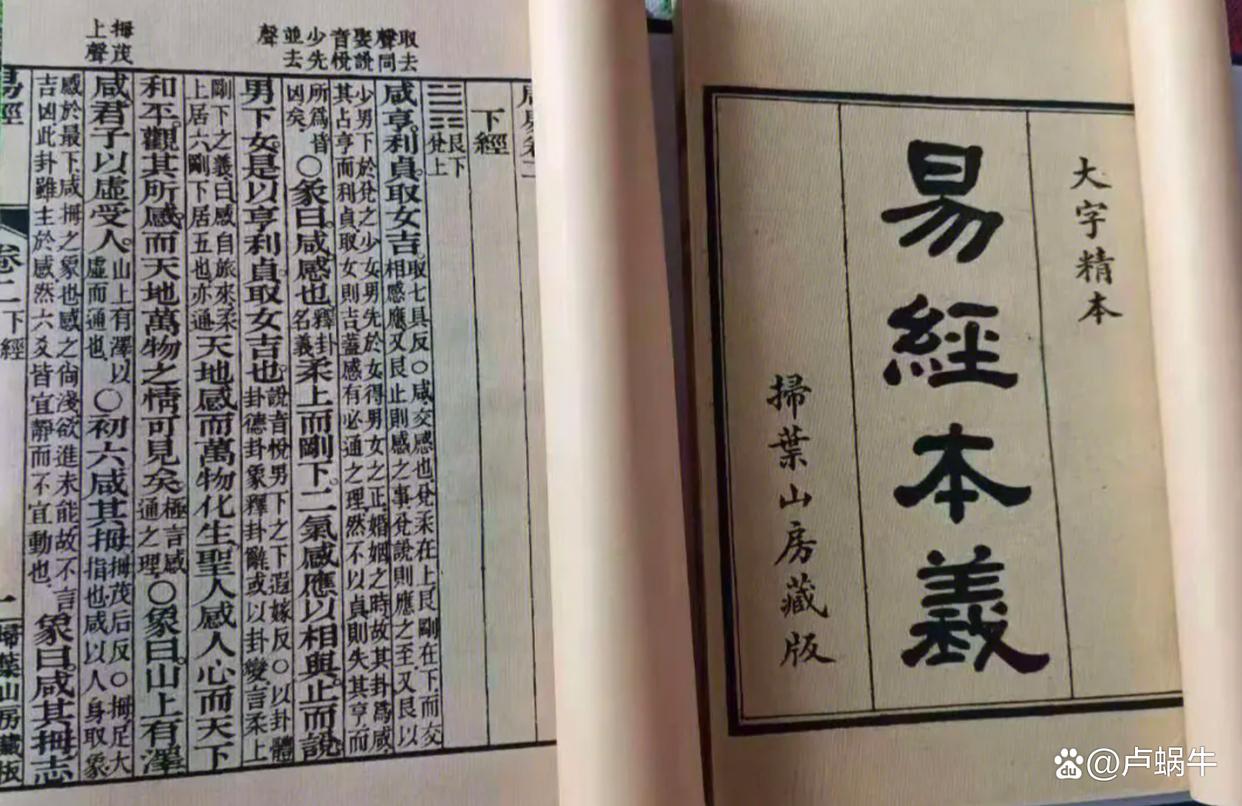 大字精本
易經本義
掃葉山房藏版
取去
聲同
娶說
音悅
少先
並去
聲
拇茂
上聲
周易卷二
下經
䷞ 艮下
兌上
咸亨利貞取女吉。取七具反○咸交感也兌柔在上艮剛在下而交
相感應又艮止則感之專兌說則應之至又艮以
少男下於兌之少女男先於女得男女之正婚姻之時故其卦爲咸
其占亨而利貞取女則吉蓋感有必通之理然不以貞則失其亨而
所爲皆
凶矣 ○彖曰咸感也。釋卦
名義 柔上而剛下二氣感應以相與止而說
男下女是以亨利貞取女吉也 說音悅男下之下遐嫁反○以卦體
卦德卦象釋卦辭或以卦變言柔上
剛下之義曰咸自旅來柔
上居六剛下居五也亦通 天地感而萬物化生聖人感人心而天下
和平觀其所感而天地萬物之情可見矣 極言感
通之理 ○象曰山上有澤
咸君子以虛受人。山上有澤以
虛而通也 ○初六咸其拇 拇茂后反○拇足大
指也咸以人身取象
感於最下咸拇之象也感之尚淺欲進未能故不言
吉凶此卦雖主於感然六爻皆宜靜而不宜動也 象曰咸其拇志
易經
卷二 下經
一 掃葉山房藏板
Baidu @卢蜗牛